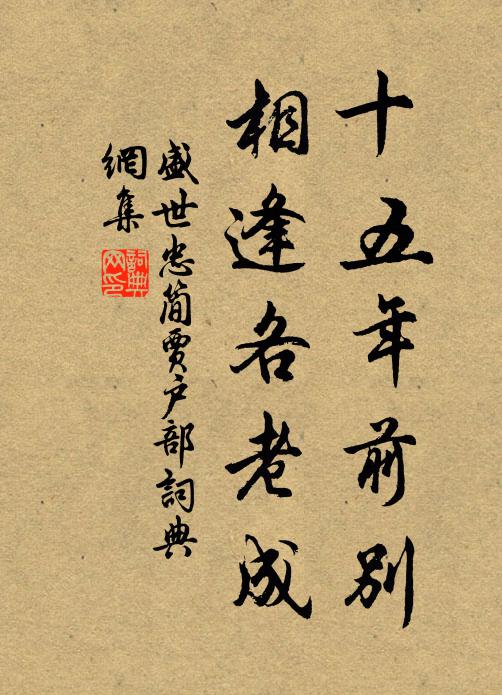 十五年前别
相逢各老成
盛世忠簡賈户部詞典
網集
詞典
网印